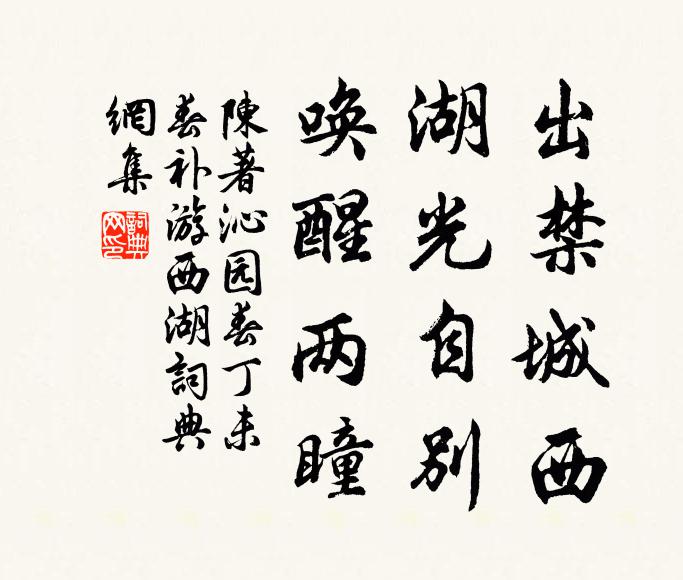 出禁城西
湖光自别
唤醒两瞳
陳著沁园春丁未
春补游西湖詞典
網集
詞典
网印